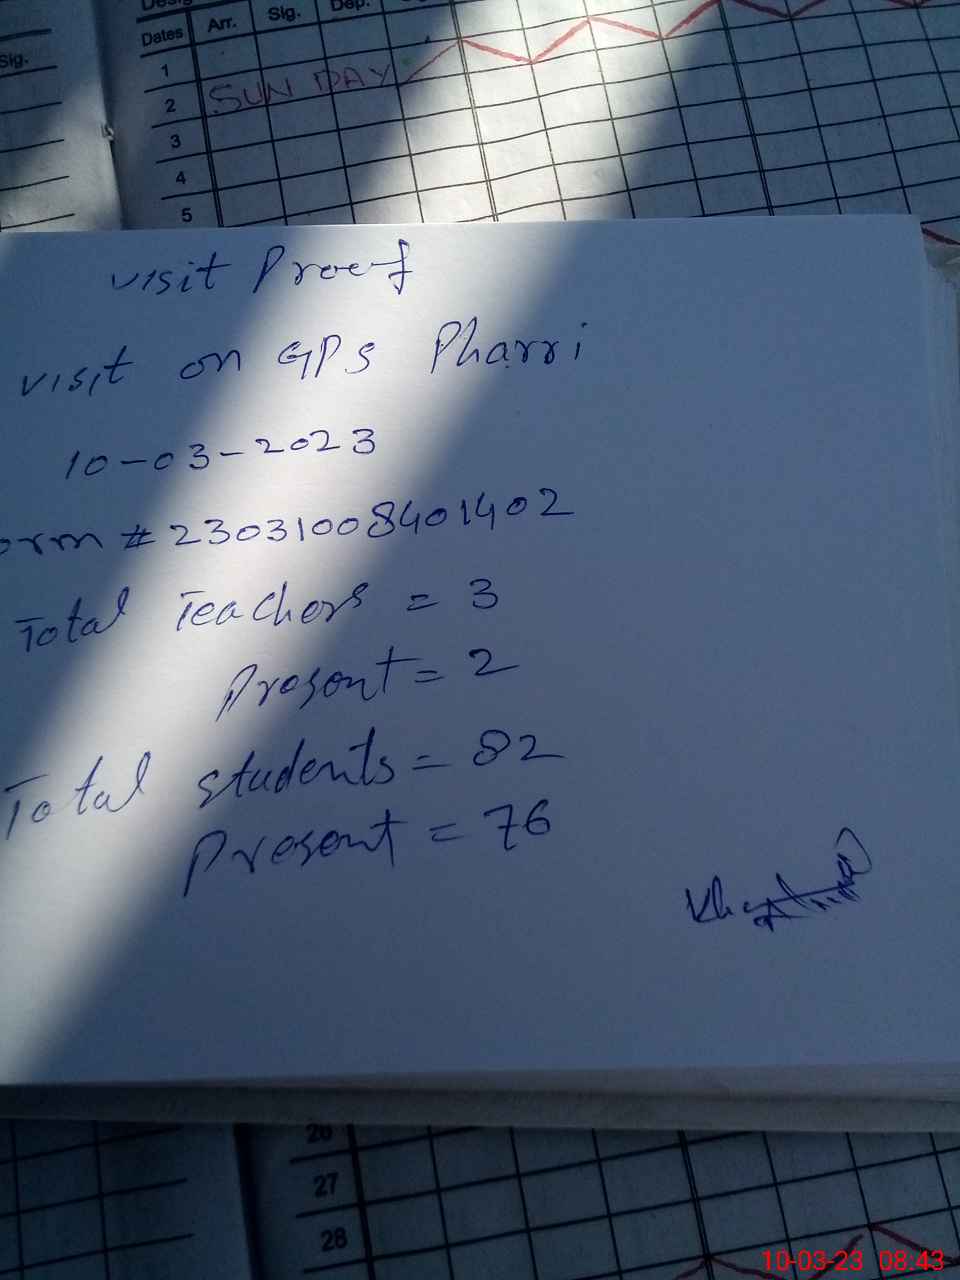 Sig.
Dates Arr. Sig. Dep.
1
2 SUNDAY
3
4
5
visit Proof
visit on GPS Pharri
10-03-2023
orm # 23031008401402
Total Teachers = 3
Present = 2
Total students = 82
Present = 76
26
27
28
10-03-23 08:43